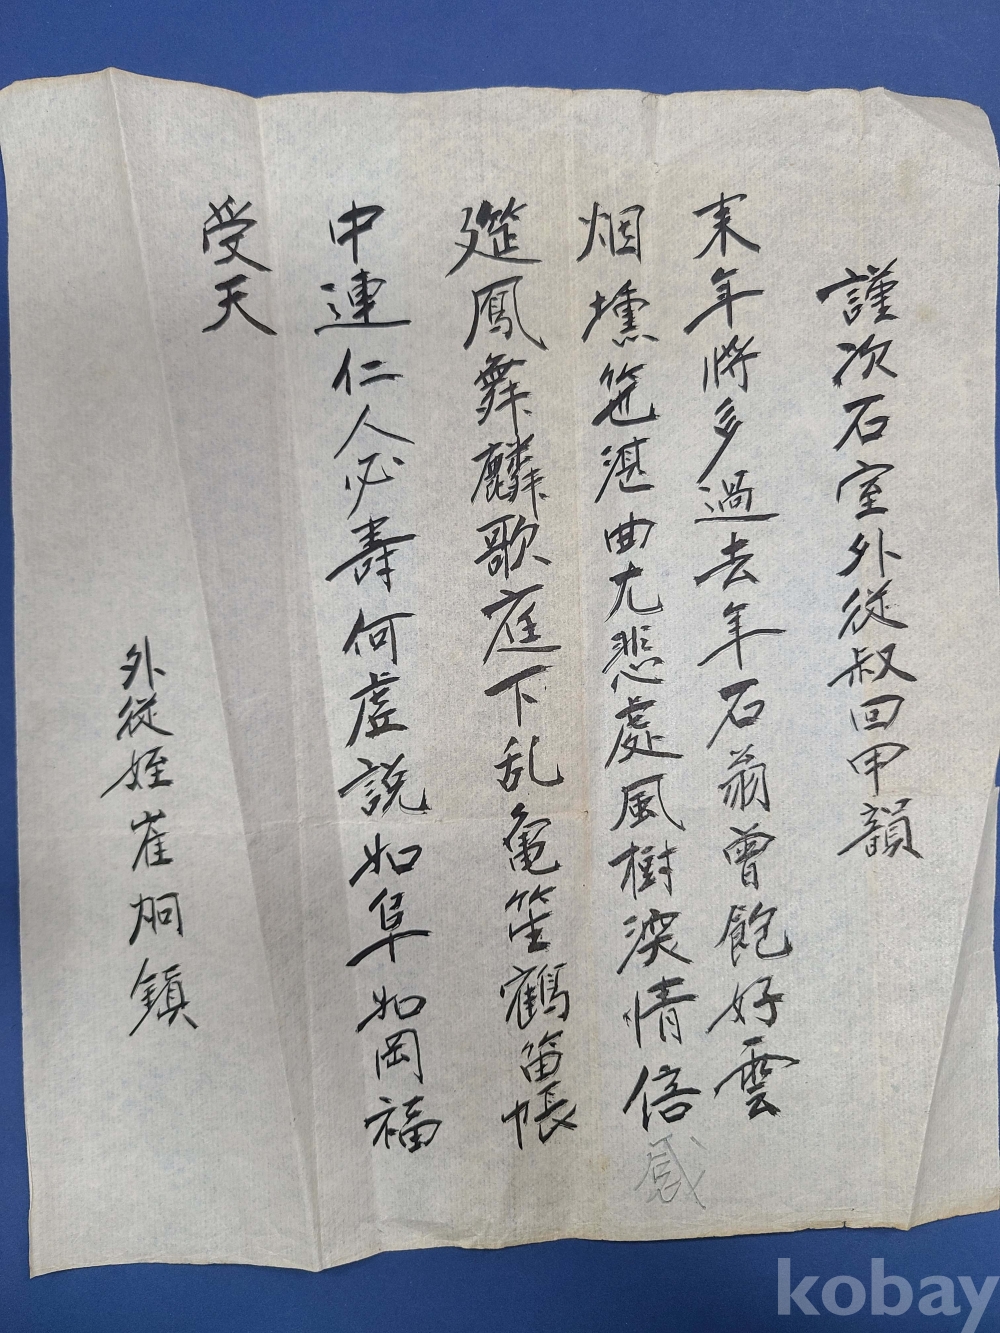 謹次石室外從叔回甲韻
来年將多過去年石翁曾飽好雲
烟壎笹湛曲尤悲處風樹深情倍
感
筵鳳舞麟歌庭下乱亀笙鶴笛帳
中連仁人必壽何虛説如阜如岡福
受天
外從姪崔炯鎭
kobay